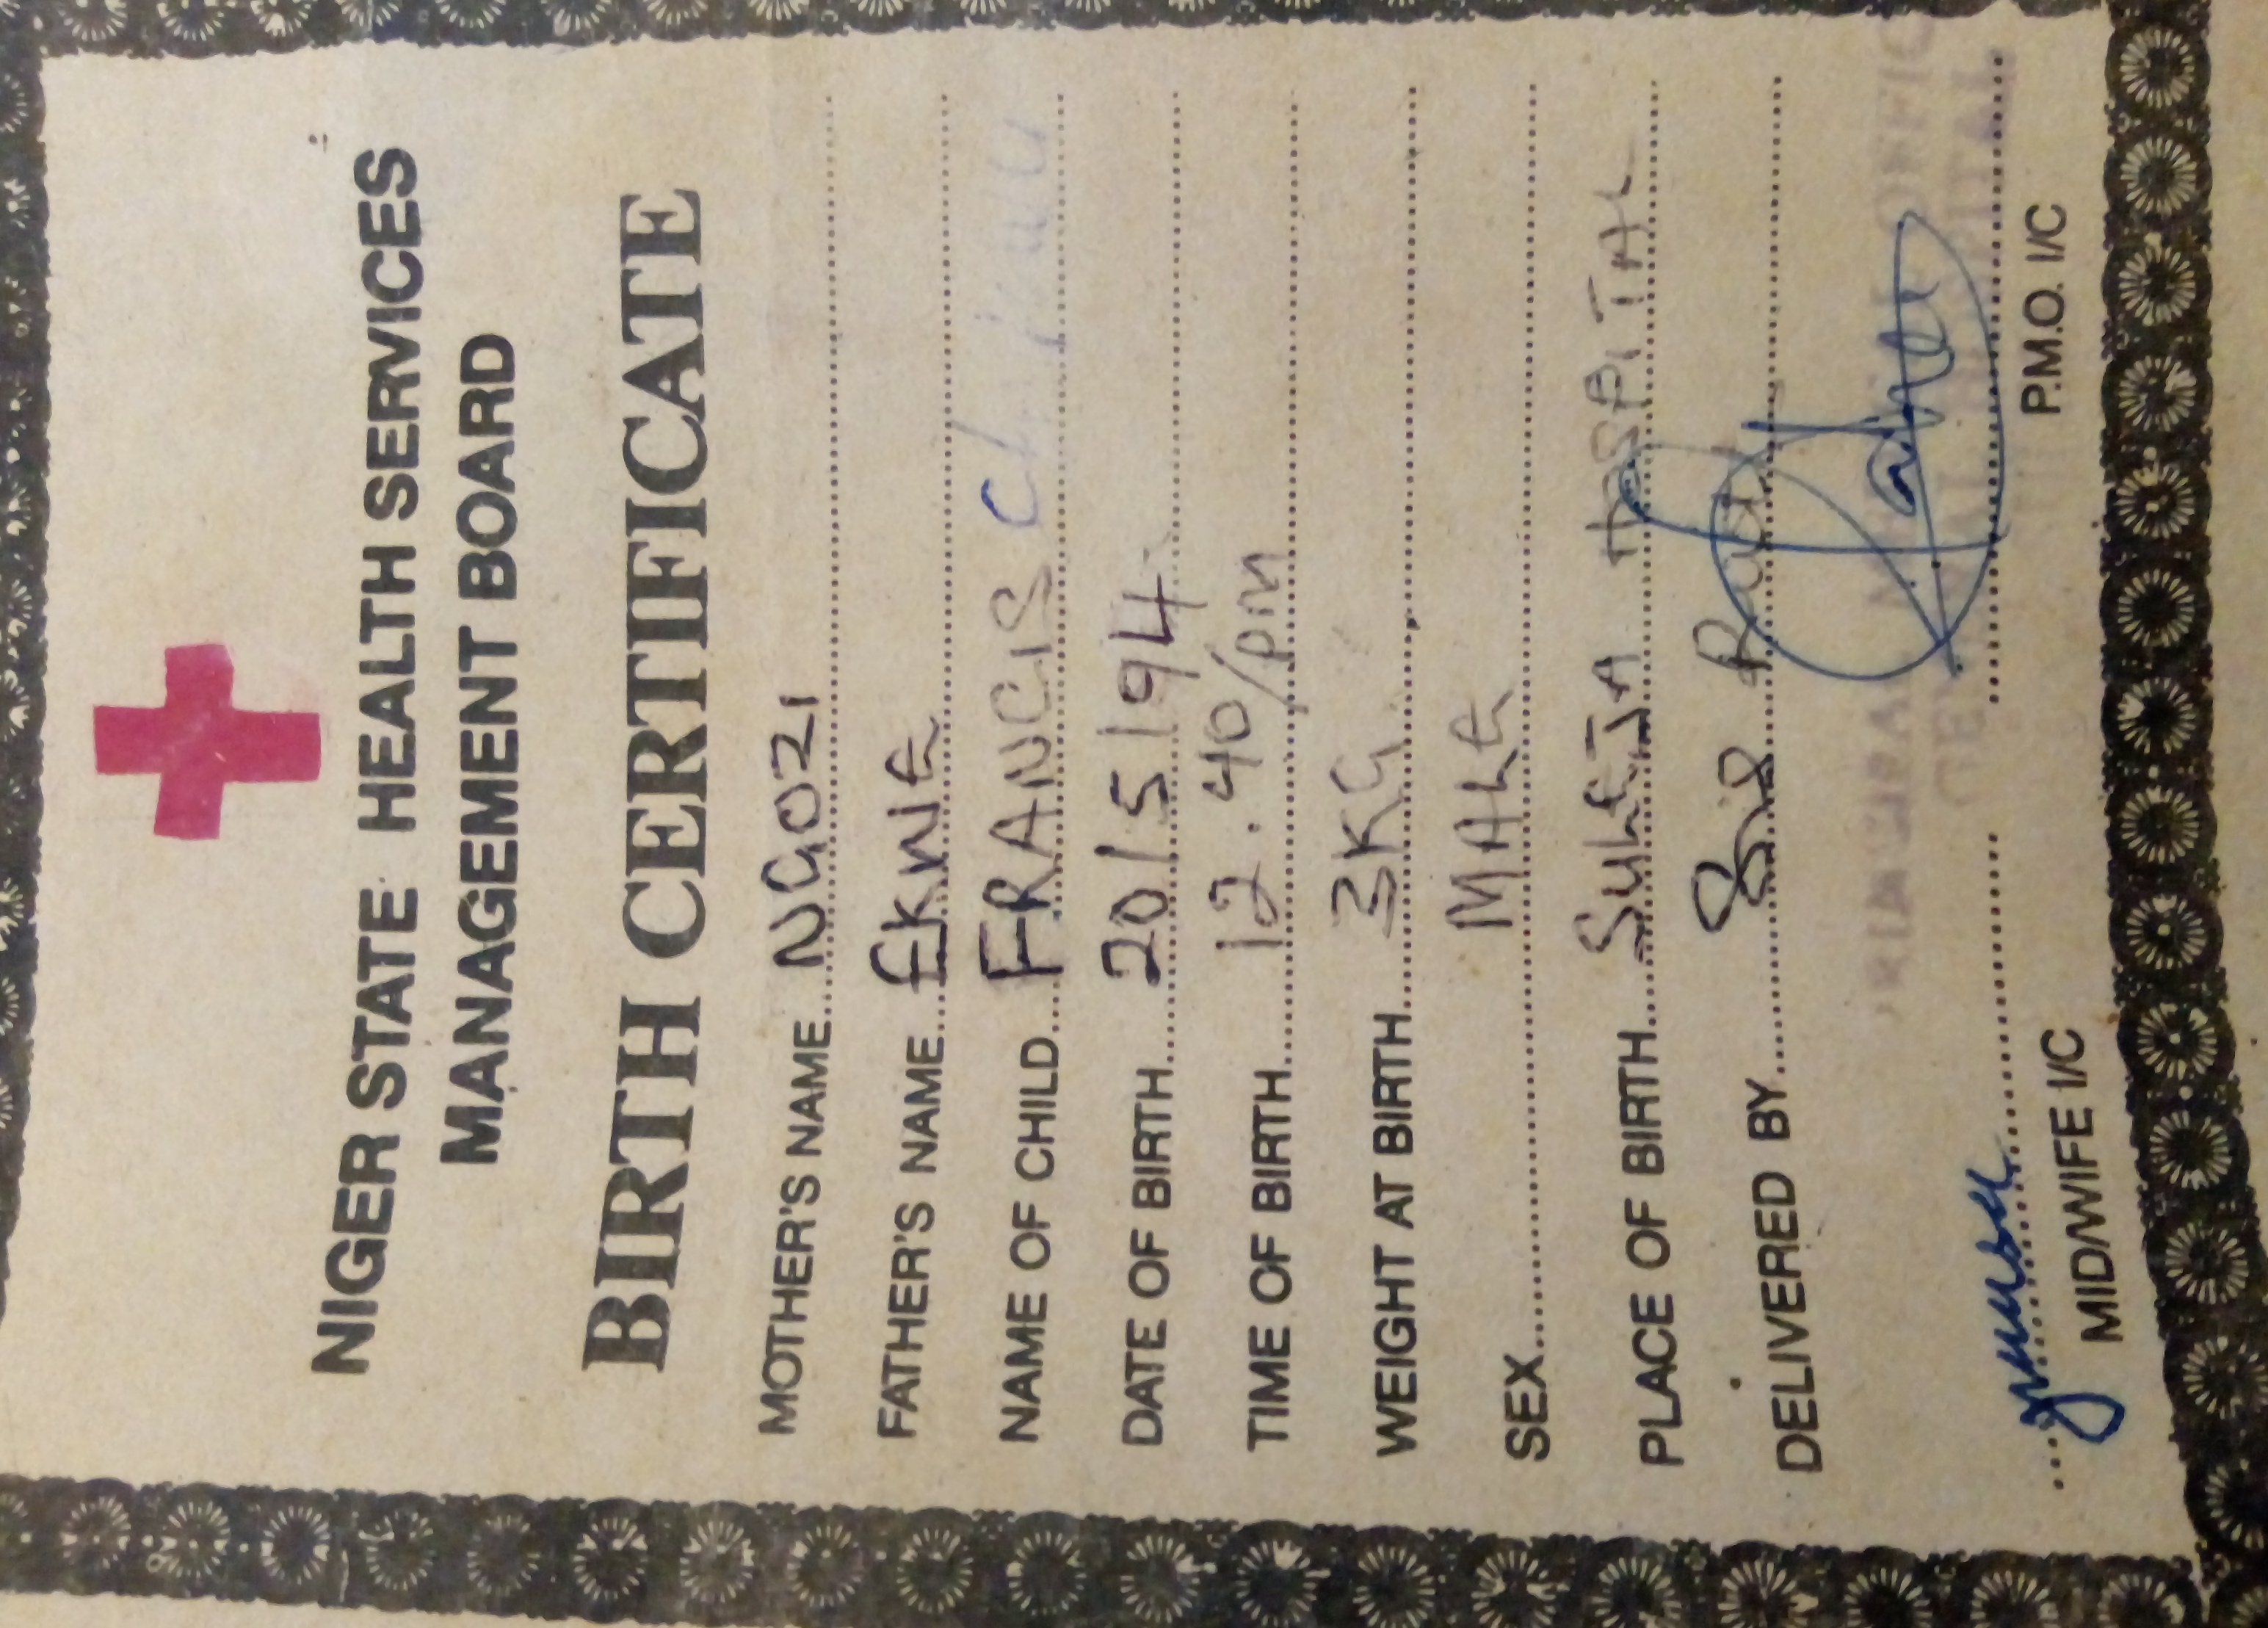 NIGER STATE HEALTH SERVICES
MANAGEMENT BOARD
BIRTH CERTIFICATE
MOTHER'S NAME NGOZI
FATHER'S NAME EKWE
NAME OF CHILD FRANCIS
DATE OF BIRTH 20/5/94
TIME OF BIRTH 12.40/pm
WEIGHT AT BIRTH 3KG
SEX MALE
PLACE OF BIRTH SULEJA HOSPITAL
DELIVERED BY
MIDWIFE I/C P.M.O. I/C